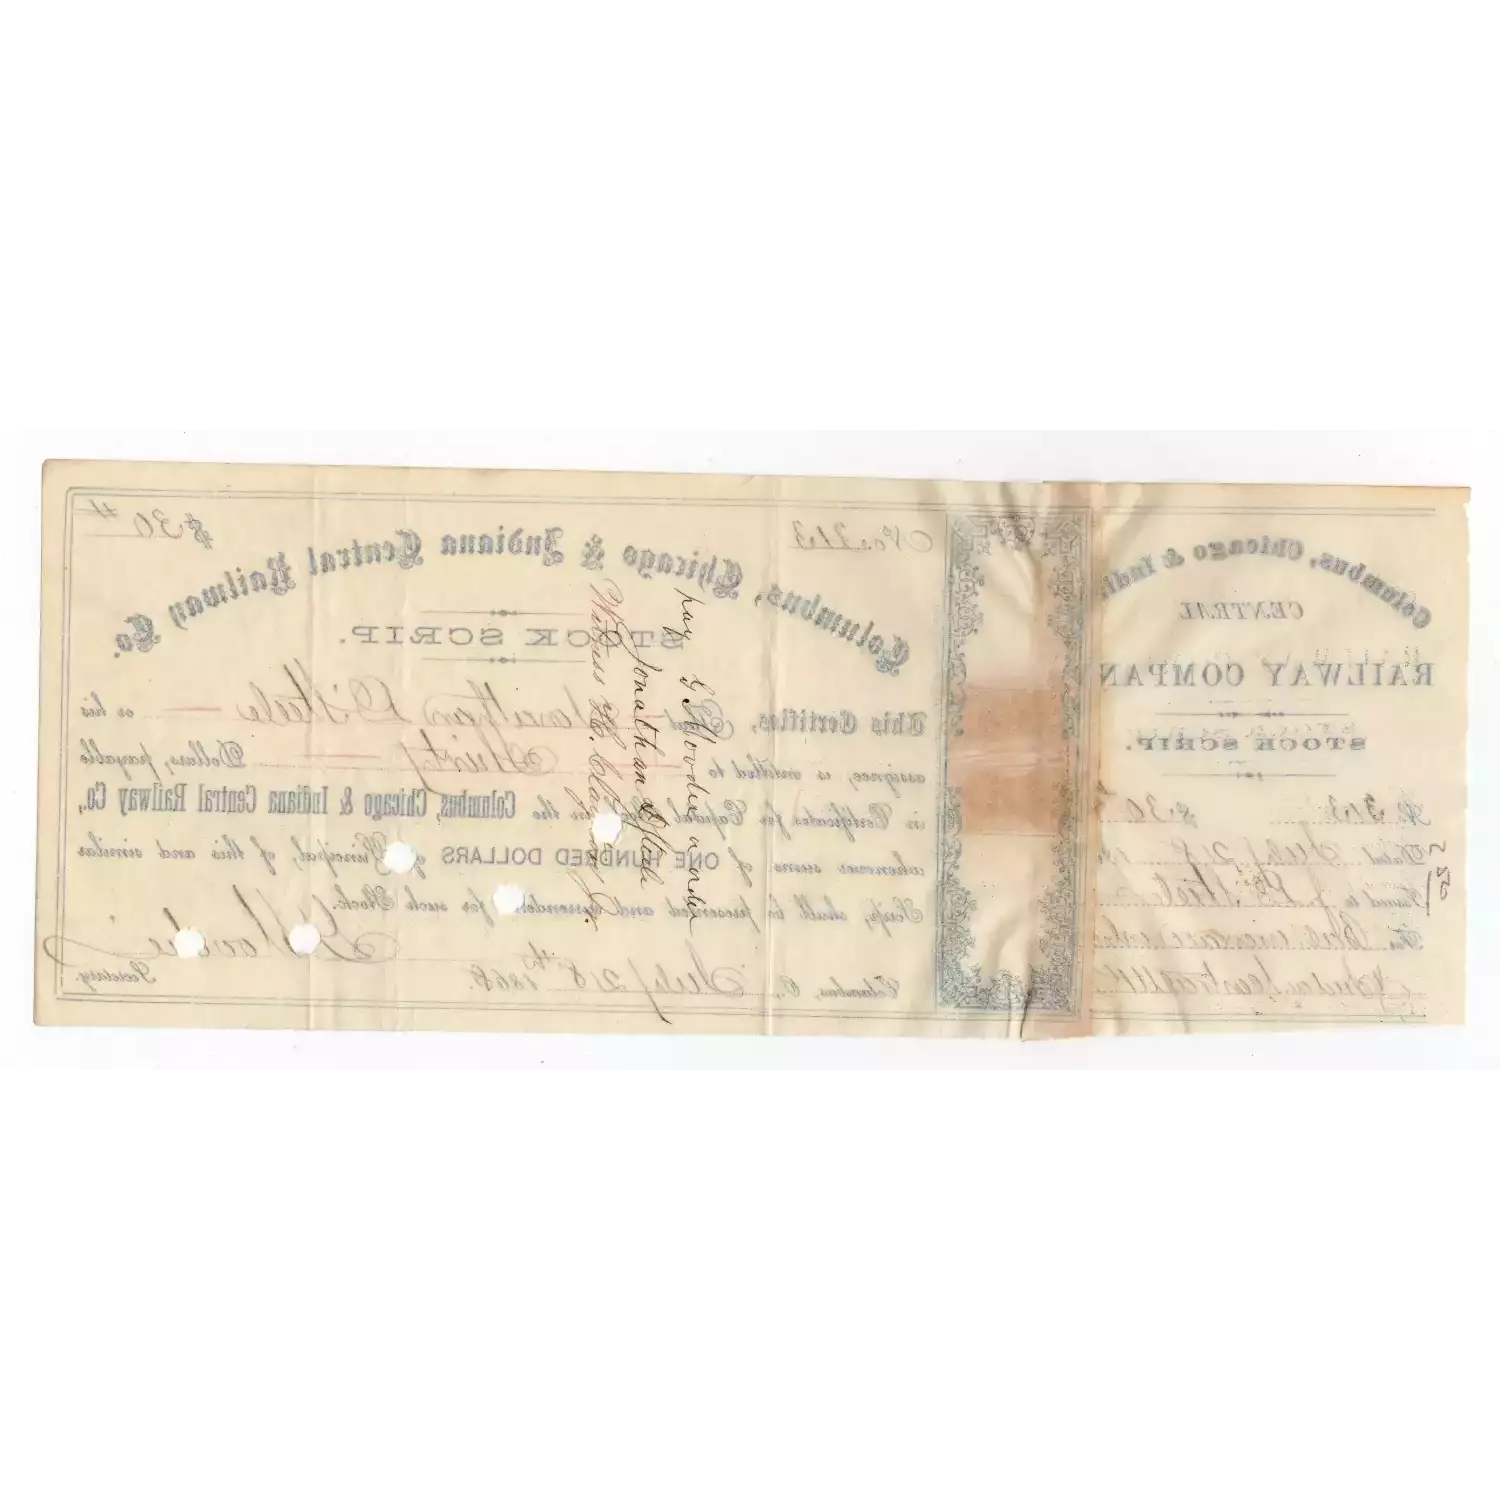 $30
No. 313
Columbus, Chicago & Indiana Central Railway Co.
STOCK SCRIP.
This Certifies, That Jonathan D Steele or his
assignee, is entitled to Thirty Dollars, payable
in Certificates for Capital Stock in the Columbus, Chicago & Indiana Central Railway Co.,
whenever sums of ONE HUNDRED DOLLARS of Principal, of this and similar
Scrip, shall be presented and surrendered for such Stock.
Columbus, O., Sept 21st 1868.
Secretary.
pay G Moodie or order
Jonathan D Steele
Witness H. C.
Columbus, Chicago & Indi.
CENTRAL
RAILWAY COMPAN
STOCK SCRIP.
No 313 $30
Dated Sept 21
Issued to J. D. Steele
For
525